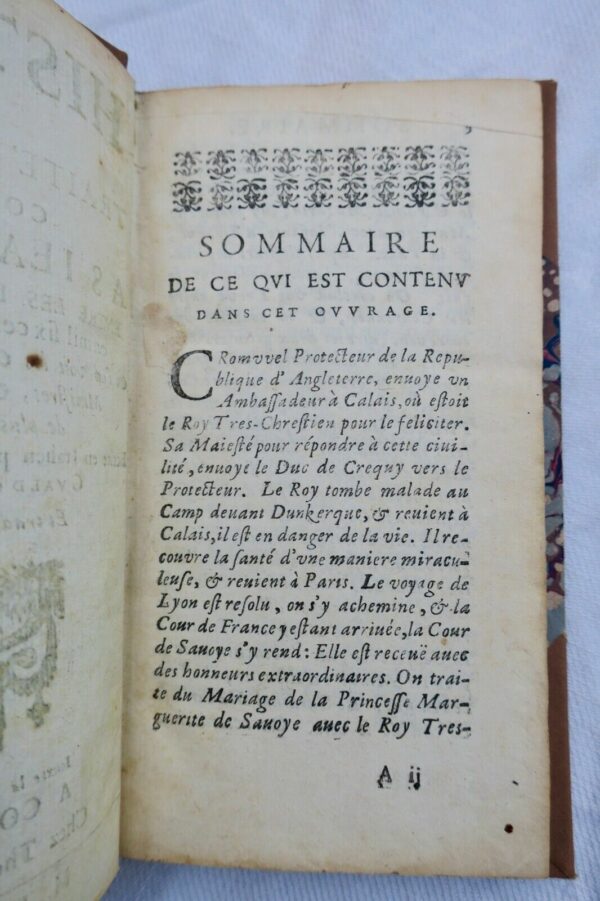 HIS
TE
CO
3
SOMMAIRE
DE CE QVI EST CONTENV
DANS CET OVVRAGE.
CRomvvel Protecteur de la Repu-
blique d'Angleterre, enuoye vn
Ambaſſadeur à Calais, où eſtoit
le Roy Tres-Chreſtien pour le feliciter.
Sa Maieſté pour répondre à cette ciui-
lité, enuoye le Duc de Crequy vers le
Protecteur. Le Roy tombe malade au
Camp deuant Dunkerque, & reuient à
Calais, il eſt en danger de la vie. Il re-
couvre la ſanté d'vne maniere miracu-
leuſe, & reuient à Paris. Le voyage de
Lyon eſt reſolu, on s'y achemine, & la
Cour de France y eſtant arriuée, la Cour
de Sauoye s'y rend: Elle eſt receuë auec
des honneurs extraordinaires. On trai-
te du Mariage de la Princeſſe Mar-
guerite de Sauoye auec le Roy Tres-
A ij
A CO
Chez The